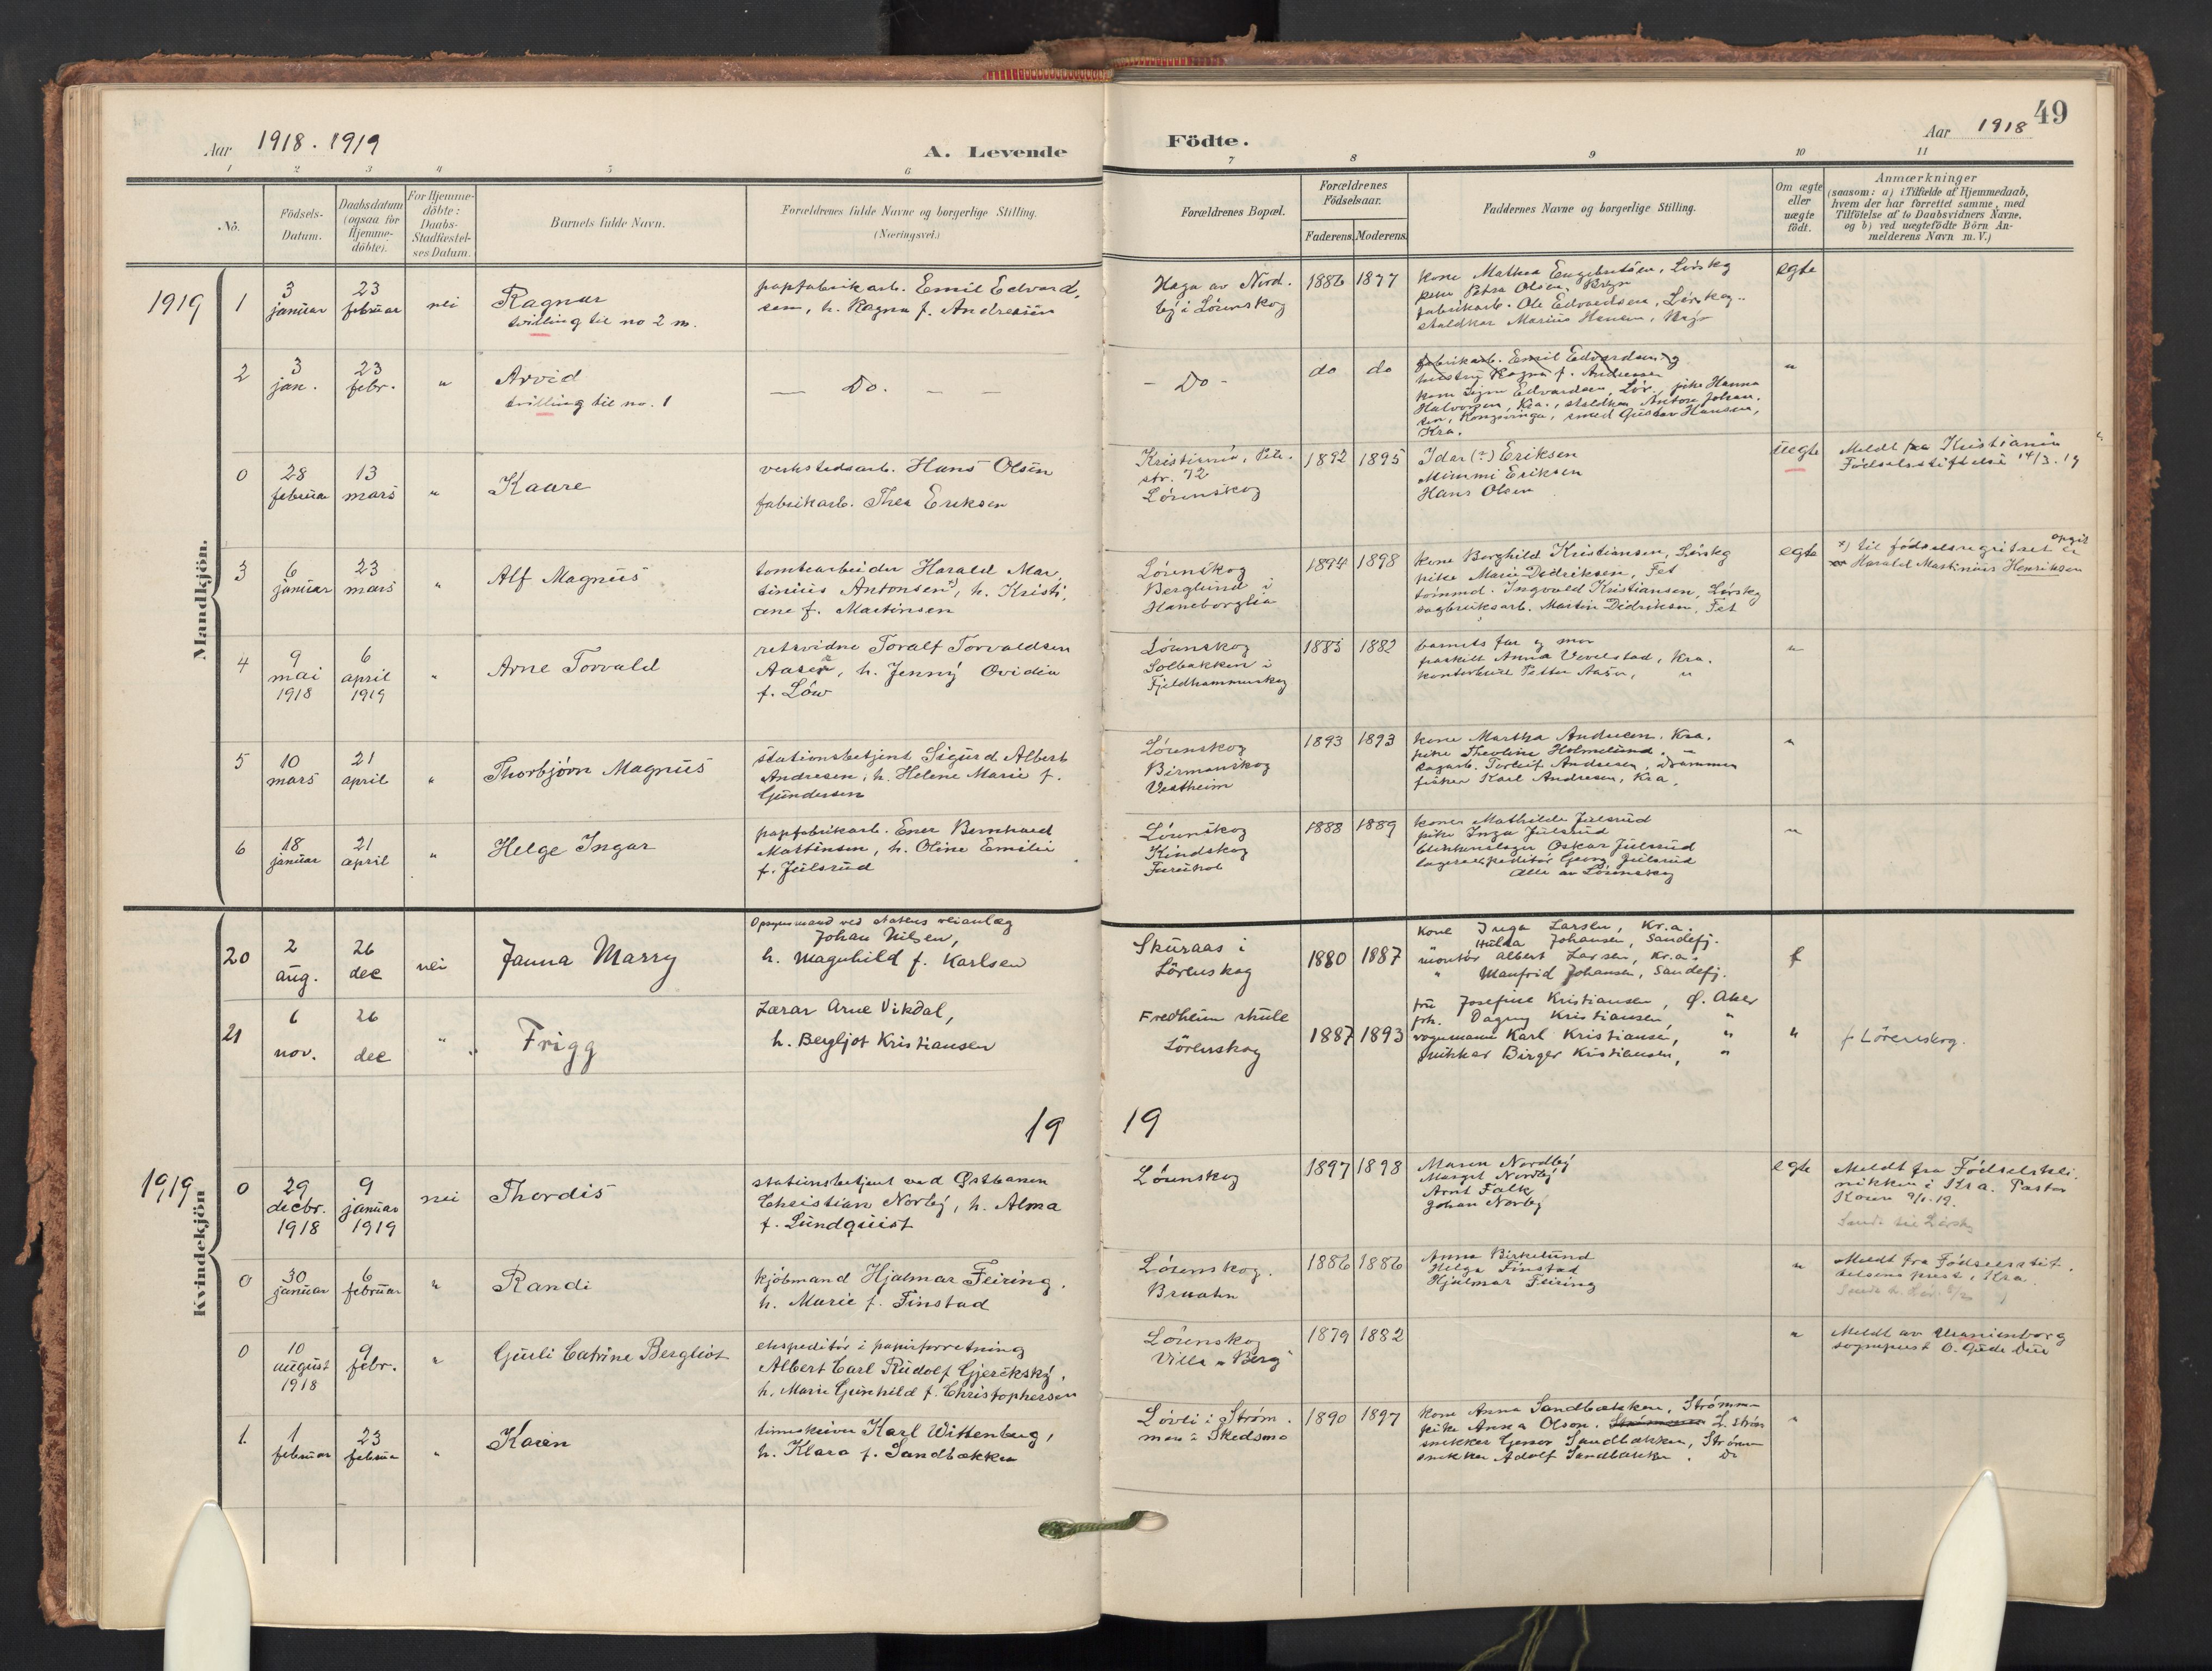 Aar 1918. 1919
A. Levende
Födte.
Aar 1918
49
1 2 3 4 5 6 7 8 9 10 11
No.
Födsels-
Datum.
Daabsdatum
(ogsaa for
Hjemme-
döbte).
For Hjemme-
döbte:
Daabs-
Stadfæstel-
ses Datum.
Barnets fulde Navn.
Forældrenes fulde Navne og borgerlige Stilling.
(Næringsvei.)
Forældrenes Bopæl.
Forældrenes
Födselsaar.
Faderens. Moderens.
Faddernes Navne og borgerlige Stilling.
Om ægte
eller
uægte
födt.
Anmærkninger
(saasom: a) i Tilfælde af Hjemmedaab,
hvem der har forrettet samme, med
Tilföielse af to Daabsvidners Navne,
og b) ved uægtefödte Börn An-
melderens Navn m. V.)
Mandkjön.
1919
1
3
januar
23
februar
nei
Ragnar
tvilling til no 2 m.
papfabrikarb. Emil Edvard,
sen, h. Ragna f. Andresen
Haga av Nord.
by i Lørenskog
1886
1877
kone Mathea Engebretsen, Lørskg
Petra Olsen,
fabrikarb. Ole Edvardsen, Lørskog
staldkar Marius Hansen,
egte
2
3
jan.
23
febr.
"
Arvid
tvilling til no. 1
— Do. — —
- Do -
do
do
fabrikarb. Emil Edvardsen og
hustru Ragna f. Andresen
kone Signe Edvardsen, Lør., pike Hanna
Halvorsen, Kra., staldkar Anton Johan.
sen, Kongsvinger, smed Gustav Hansen,
Kra.
"
0
28
februar
13
mars
"
Kaare
verkstedsarb. Hans Olsen
fabrikarb. Thea Eriksen
Kristiania, Pile.
str. 72
Lørenskog
1892
1895
Idar (?) Eriksen
Mimmi Eriksen
Hans Olsen
uegte
Meldt fra Kristiania
Fødselsstiftelse 14/3. 19
3
6
januar
23
mars
"
Alf Magnus
tomtearbeider Harald Mar
tinius Antonsen x), h. Kristi,
ane f. Martinsen
Lørenskog
Berglund i
Haneborglia
1894
1898
kone Borghild Kristiansen, Lørskg
pike Marie Didriksen, Fet
tømmd. Ingvald Kristiansen, Lørskg
sagbruksarb. Martin Didriksen, Fet
egte
x) til fødselsregistret er opgit
Harald Martinius Henriksen
4
9
mai
1918
6
april
1919
"
Arne Torvald
retsvidne Toralf Torvaldsen
Aasen, h. Jenny Ovidia
f. Löw
Lørenskog
Solbakken i
Fjeldhammerskog
1883
1882
barnets far og mor
fraskilt Anna Vevelstad, Kra.
Petter Aasen, "
"
5
10
mars
21
april
"
Thorbjørn Magnus
stationsbetjent Sigurd Albert
Andresen, h. Helene Marie f.
Gundersen
Lørenskog
Birmanskog
Vestheim
1893
1893
kone Martha Andresen. Kra.
pike Theoline Holmelund. "
sagarb. Torleif Andresen, Drammen
fisker Karl Andresen, Kra.
"
6
18
januar
21
april
"
Helge Ingar
papfabrikarb. Ener Bernhard
Martinsen, h. Oline Emilie
f. Julsrud
Lørenskog
Kindskog
Furuhol
1888
1889
kone Mathilde Julsrud
pike Inga Julsrud
blikkenslager Oskar Julsrud
lagerexpeditör Georg Julsrud
alle av Lørenskog
"
Kvindekjön
20
2
aug.
26
dec
nei
Janna Marry
Opsynsmand ved statens veianlæg
Johan Nilsen,
h. Magnhild f. Karlsen
Skuraas i
Lörenskog
1880
1887
Kone Inga Larsen, Kr.a.
" Hulda Johansen, Sandefj.
montör Albert Larsen, Kr.a.
" Manfrid Johansen, Sandefj.
f
21
6
nov.
26
dec
"
"
Frigg
Lærar Arne Vikdal,
h. Bergljot Kristiansen
Fredheim skule
Lörenskog
1887
1893
fru Josefine Kristiansen, Ø. Aker
frk. Dagny Kristiansen "
vognmann Karl Kristiansen, "
snikkar Birger Kristiansen, "
"
f Lörenskog.
19
19
1919
0
29
decbr.
1918
9
januar
1919
nei
Thordis
stationsbetjent ved Østbanen
Christian Norby, h. Alma
f. Lundquist
Lørenskog
1897
1898
Maren Nordby
Margit Nordby
Arnt Falk
Johan Norby
egte
Meldt fra Fødselskli
nikken i Kra. Pastor
9/1. 19.
0
30
januar
6
februar
"
Randi
kjøbmand Hjalmar Feiring.
h. Marie f. Finstad
Lørenskog.
Bruahn
1886
1886
Anna Birkelund
Helga Finstad
Hjalmar Feiring
"
Meldt fra Fødselsstif.
telsens prest, Kra.
0
10
august
1918
9
febr.
"
Guli Catrine Bergliot
ekspeditör i papirforretning
Albert Carl Rudolf Gjersiksky,
h. Marie Gunhild f. Christophersen
Lørenskog
Villa "Berg"
1879
1882
"
Meldt av Uranienborg
sogneprest O. Gude Due
1.
1
februar
23
februar
"
Karin
timeskriver Karl Wittenberg,
h. Klara f. Sandbækken
Løvli i Strøm.
men i Skedsmo
1890
1897
kone Anna Sandbækken, Strømm
pike Anna Olson. L. strøm
snekker Sandbækken, Strømm
snekker Adolf Sandbækken. Do
"